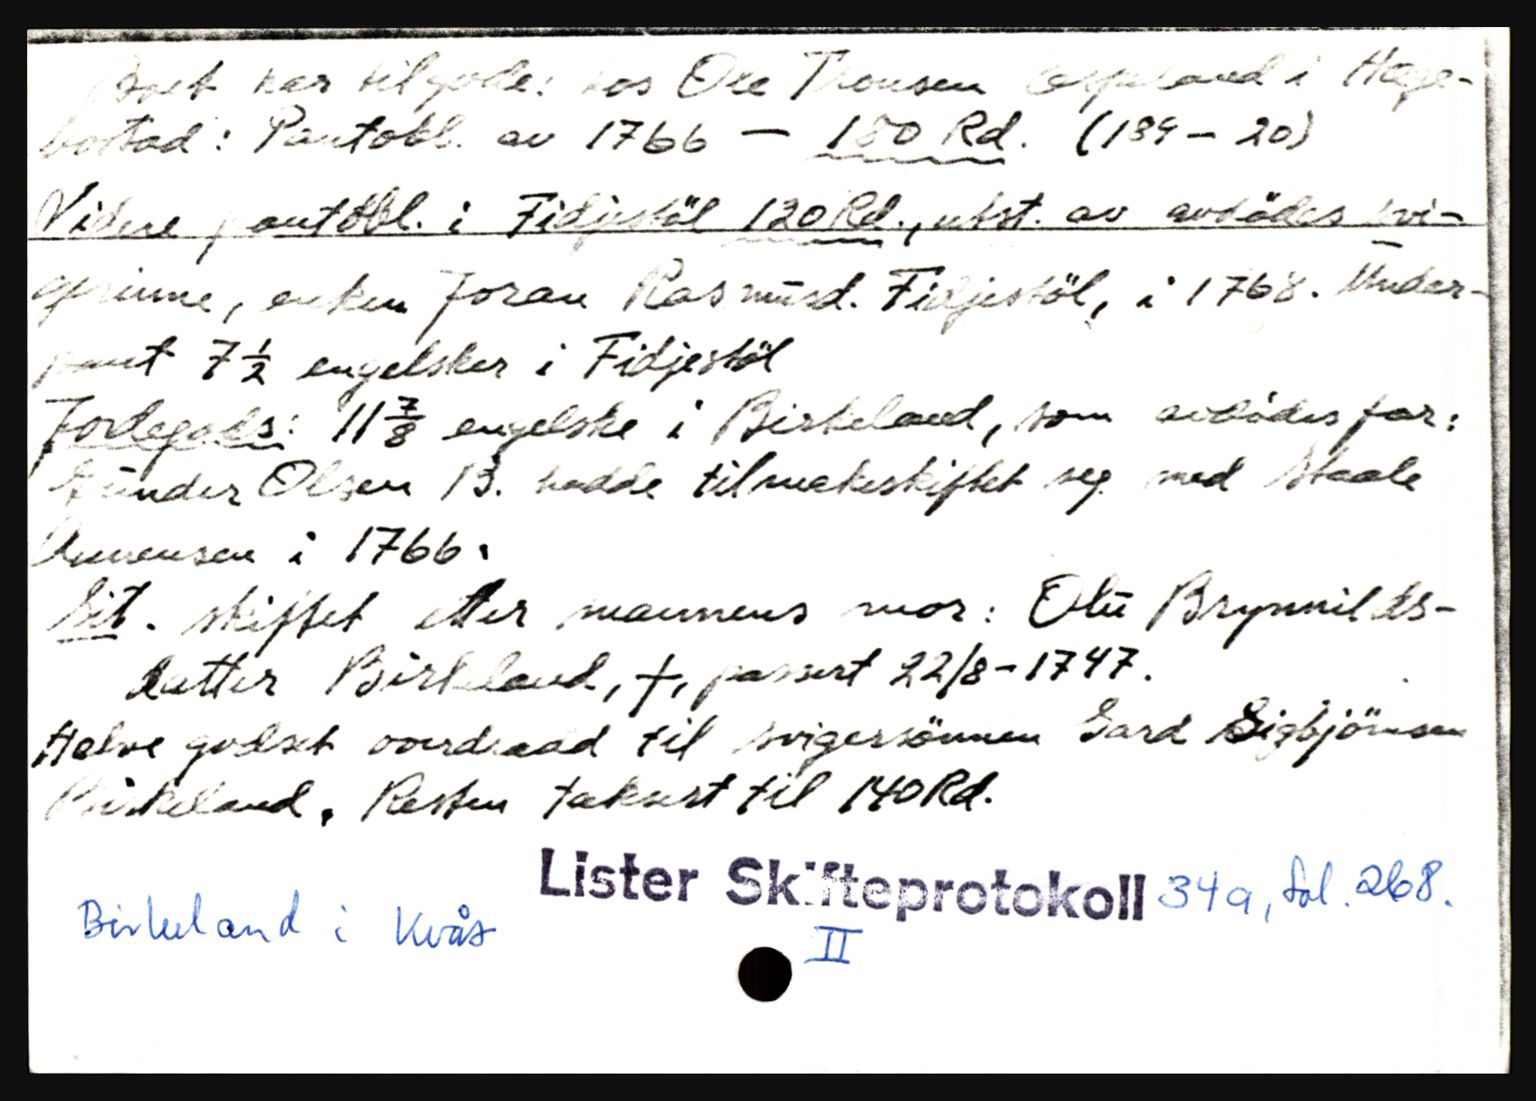 Boet har tilgode: hos Ole Thomsen i Hæge-
bostad: Pantobl. av 1766 — 180 Rd. (139 - 20)
Videre pantobl. i Fidjestöl 120 Rd., utst. av avdødes svi-
gerinne, enken Joran Rasmusd. Fidjestöl, i 1768. Under-
pant 7 1/2 engelsker i Fidjestöl
Jordegods: 11 7/8 engelske i Birkeland, som avdødes far:
Gunder Olsen B. hadde tilmakeskiftet seg med Staale
i 1766.
Sit. skiftet etter mannens mor: Olu Brynnilds-
datter Birkeland, †, passert 22/8-1747.
Halve godset overdradd til svigersönnen Gard Sigbjörnsen
Birkeland. Resten taksert til 140 Rd.
Lister Skifteprotokoll 34a, fol. 268.
Birkeland i Kvås
II